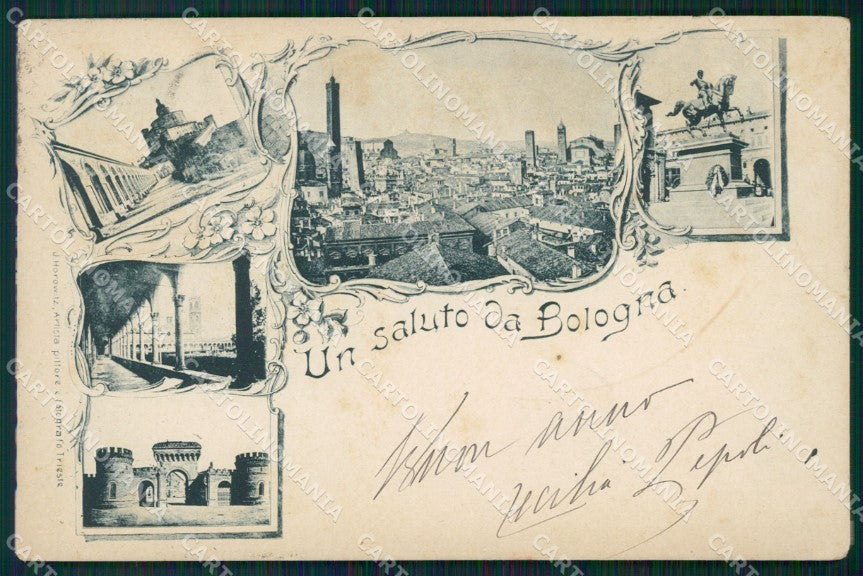 Un saluto da Bologna.
Buon anno
Cecilia Pepoli.
J. Horowitz, Artista pittore e fotografo Trieste
CARTOLINOMANIA